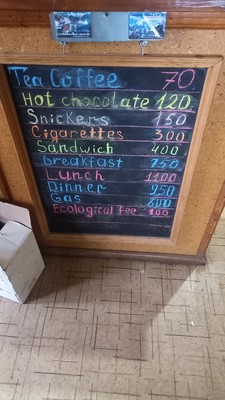 Tea Coffee 70
Hot chocolate 120
Snickers 150
Cigarettes 300
Sandwich 400
breakfast 750
Lunch 1100
Dinner 950
Gas 800
Ecological fee 100